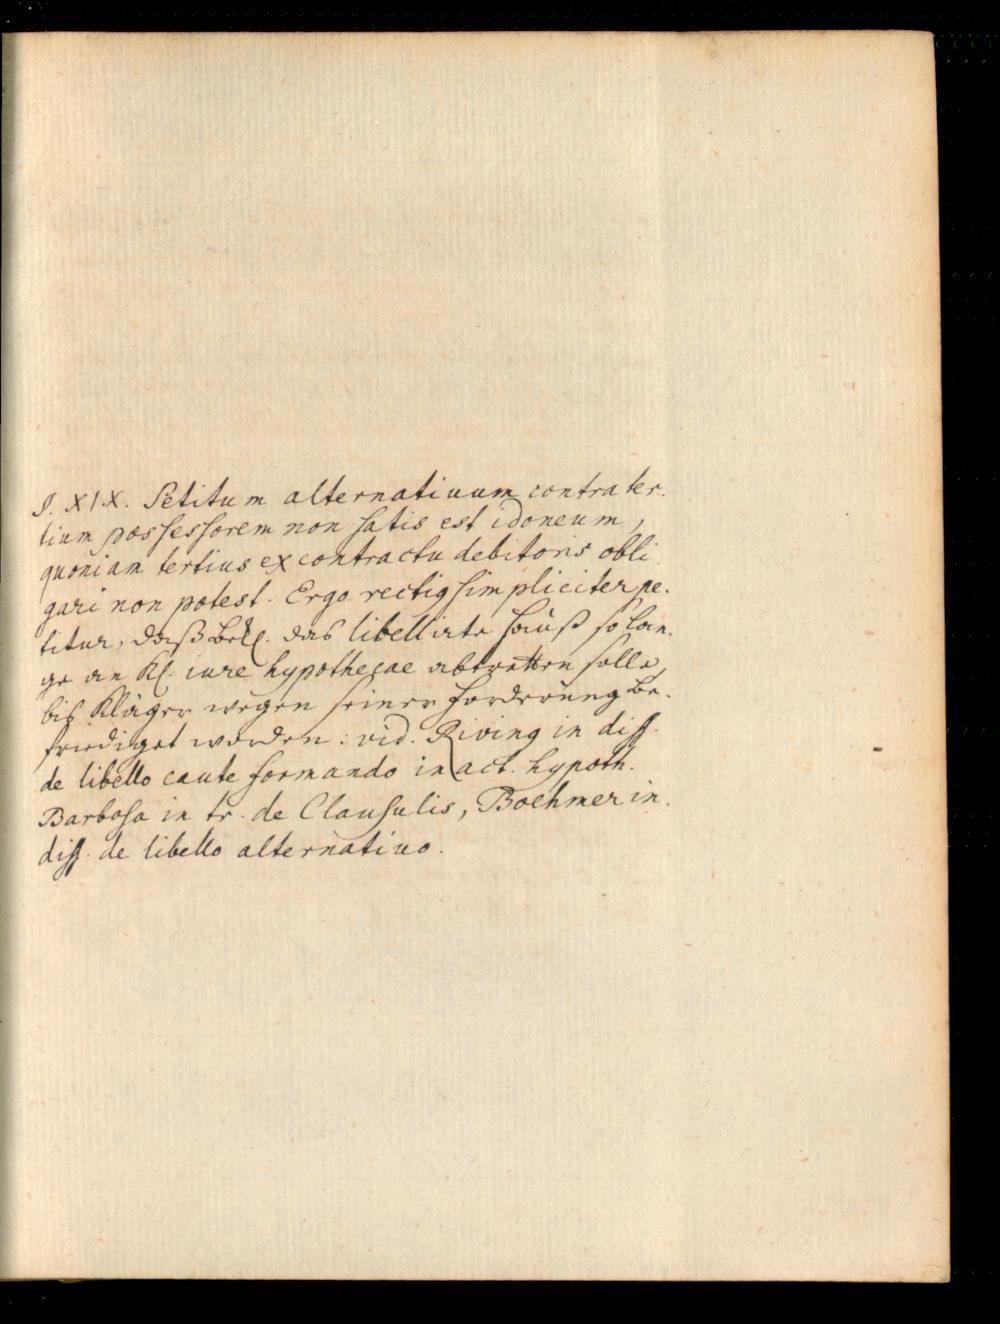 §. XIX. Petitum alternativum contra ter-
tium possessorem non satis est idoneum,
quoniam tertius ex contractu debitoris obli-
gari non potest. Ergo rectig simpliciter pe-
titur, daß Bekl. das libellirte Hauß so lan-
ge an Kl. iure hypothecae abtretten solle,
biß Kläger wegen seiner Forderung be-
friediget worden: vid. Riving in diss.
de libello caute formando in act. hypoth.
Barbosa in tr. de Clausulis, Boehmer in
diss. de libello alternativo.